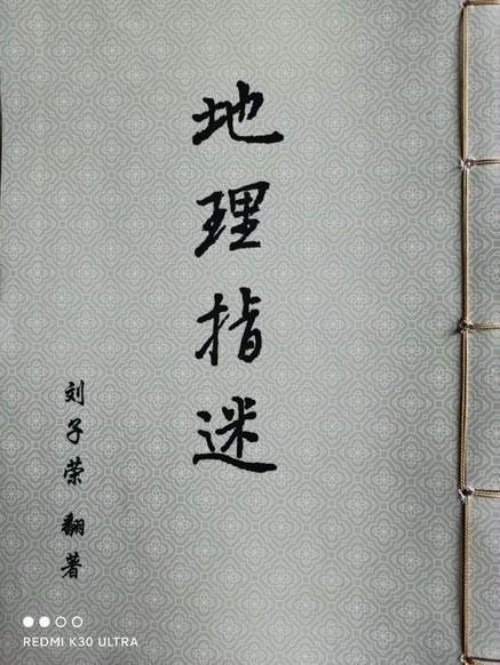 地理指迷
刘子荣 翻著
REDMI K30 ULTRA